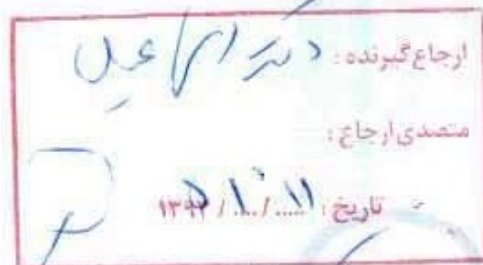 ارجاع گیرنده: دکتر اسماعیل
متصدی ارجاع:
تاریخ: